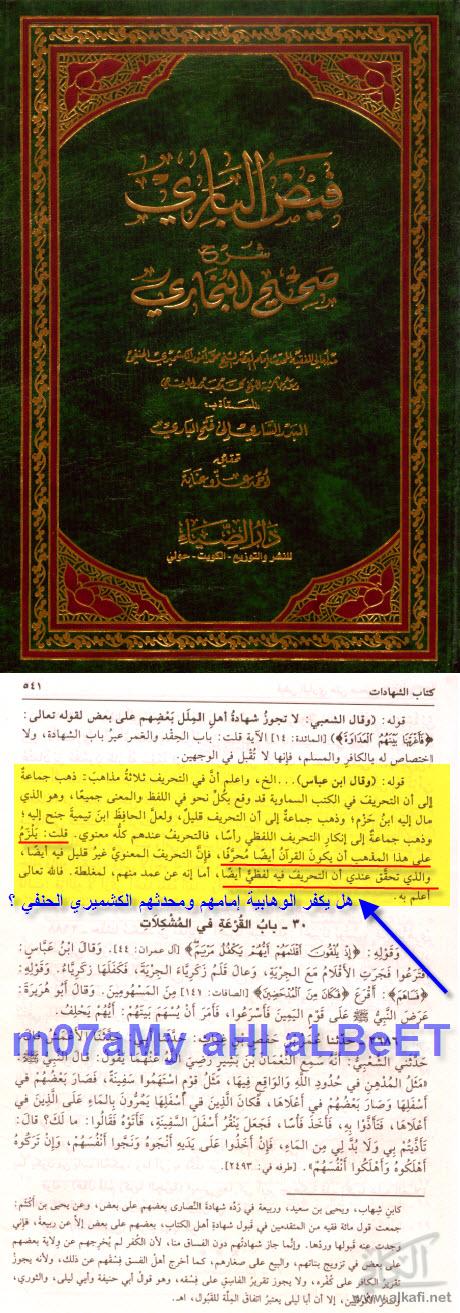 فيض الباري
شرح
صحيح البخاري
المسمّاة بـ:
البدر الساري إلى فيض الباري
تحقيق
أحمد عزو عناية
دار الضياء
للنشر والتوزيع - الكويت - حولي
كتاب الشهادات ٥٤١
قوله: (وقال الشعبي: لا تجوز شهادةُ أهل المِلَل بَعْضِهم على بعض لقوله تعالى:
﴿فَأَغْرَيْنَا بَيْنَهُمُ الْعَدَاوَةَ﴾) [المائدة: ١٤] الآية قلت: باب الحِقْد والغمر عبر باب الشهادة، ولا
اختصاص له بالكافر والمسلم، فإنها لا تُقْبل في الوجهين.
قوله: (وقال ابن عباس)... الخ، واعلم أنَّ في التحريف ثلاثةَ مذاهبَ: ذهب جماعةٌ
إلى أن التحريف في الكتب السماوية قد وقع بكُلِّ نحو في اللفظ والمعنى جميعًا، وهو الذي
مال إليه ابنُ حَزْم؛ وذهب جماعةٌ إلى أن التحريف قليل، ولعلَّ الحافِظَ ابنَ تيميةَ جنح إليه؛
وذهب جماعةٌ إلى إنكار التحريف اللفظي رأسًا، فالتحريفُ عندهم كلُّه معنوي. قلت: يَلْزَمُ
على هذا المذهب أن يكونَ القرآنُ أيضًا مُحرَّفًا، فإِنَّ التحريفَ المعنويَّ غيرُ قليل فيه أيضًا،
والذي تحقَّق عندي أن التحريفَ فيه لفظيٌّ أيضًا، أما إنه عن عمد منهم، لمغلطة. فالله تعالى
أعلم به.
هل يكفر الوهابية إمامهم ومحدثهم الكشميري الحنفي ؟
٣٠ - بابُ القُرْعَةِ في المُشْكِلَاتِ
وَقَوْلِهِ: ﴿إِذْ يُلْقُونَ أَقْلَامَهُمْ أَيُّهُمْ يَكْفُلُ مَرْيَمَ﴾ [آل عمران: ٤٤]. وَقَالَ ابْنُ عَبَّاسٍ:
اقْتَرَعُوا فَجَرَتِ الأَقْلَامُ مَعَ الجِرْيَةِ، وَعالَ قَلَمُ زَكَرِيَّاءَ الجِرْيَةَ، فَكَفَلَهَا زَكَرِيَّاءُ. وَقَوْلِهِ:
﴿فَسَاهَمَ﴾: أَقْرَعَ ﴿فَكَانَ مِنَ الْمُدْحَضِينَ﴾ [الصافات: ١٤١] مِنَ المَسْهُومِينَ. وَقَالَ أَبُو هُرَيرَةَ:
عَرَضَ النَّبِيُّ ﷺ عَلَى قَوْمٍ اليَمِينَ فَأَسْرَعُوا، فَأَمَرَ أَنْ يُسْهَمَ بَيْنَهُمْ: أَيُّهُمْ يَحْلِفُ.
m07aMy aHl aLBeET
٢٦٨٦ - حدّثنا عُمَرُ بْنُ حَفْصِ بْنِ غِيَاثٍ: حَدَّثَنَا أَبِي: حَدَّثَنَا الأَعْمَشُ قَالَ:
حَدَّثَنِي الشَّعْبِيُّ: أَنَّهُ سَمِعَ النُّعْمَانَ بْنَ بَشِيرٍ رَضِيَ اللَّهُ عَنْهُمَا يَقُولُ: قالَ النَّبِيُّ ﷺ:
«مَثَلُ المُدْهِنِ في حُدُودِ اللَّهِ وَالوَاقِعِ فِيهَا، مَثَلُ قَوْمٍ اسْتَهَمُوا سَفِينَةً، فَصَارَ بَعْضُهُمْ في
أَسْفَلِهَا وَصَارَ بَعْضُهُمْ في أَعْلَاهَا، فَكَانَ الَّذِينَ في أَسْفَلِهَا يَمُرُّونَ بِالمَاءِ عَلَى الَّذِينَ في
أَعْلَاهَا، فَتَأَذَّوْا بِهِ، فَأَخَذَ فَأْسًا، فَجَعَلَ يَنْقُرُ أَسْفَلَ السَّفِينَةِ، فَأَتَوْهُ فَقَالُوا: ما لَكَ؟ قالَ:
تَأَذَّيْتُمْ بِي وَلَا بُدَّ لِي مِنَ المَاءِ، فَإِنْ أَخَذُوا عَلَى يَدَيْهِ أَنْجَوْهُ وَنَجَّوْا أَنْفُسَهُمْ، وَإِنْ تَرَكُوهُ
أَهْلَكُوهُ وَأَهْلَكُوا أَنْفُسَهُمْ». [طرفه في: ٢٤٩٣].
كابن شهاب، ويحيى بن سعيد، وربيعة في ردّه شهادةَ النَّصارى بعضهم على بعض، وعن يحيى بن أكثم:
جمعت قول مائة فقيه من المتقدمين في قبول شهادة أهل الكتاب، بعضهم على بعض إلا عن ربيعة، فإني
وجدت عنه قبولها وردها. وإنما جاز شهادتهم دون الفساق منا، لأن الكفر لم يُخرجهم عن ولاية بعضهم
على بعض في تزويج بناتهم، والبيع على صغارهم، كما أخرج أهل الفسق فِسْقُهم عن ذلك، ولأنه يجوز
تقريرُ الكافر على كُفْره، ولا يجوز تقريرُ الفاسقِ على فِسْقه، وهو قول أبي حنيفة وأبي ليلى، والثوري،
إلا أن أبا ليلى يعتبرُ اتفاق المِلَّة للقَبُول، اهـ.
www.ajkafi.net